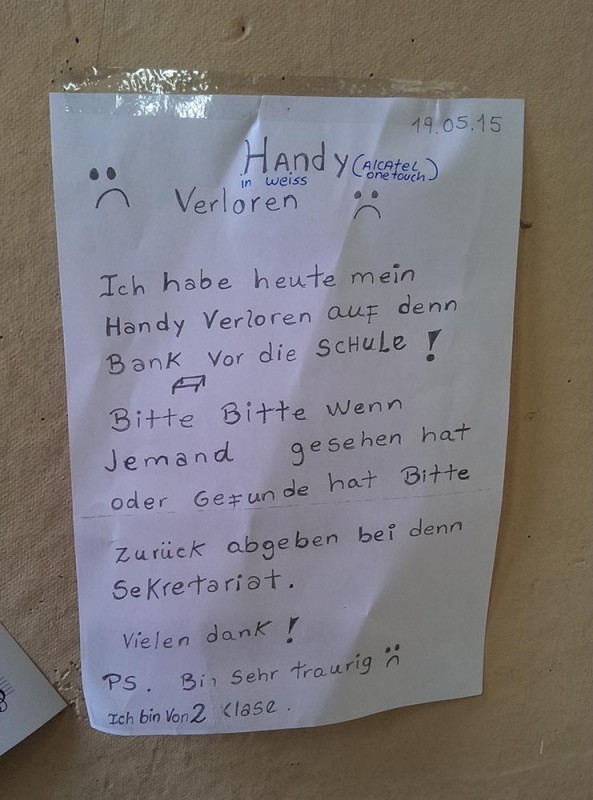 19.05.15
Handy (Alcatel onetouch)
in weiss
Verloren
Ich habe heute mein
Handy Verloren auf denn
Bank vor die Schule!
Bitte Bitte wenn
Jemand gesehen hat
oder Gefunde hat Bitte
Zurück abgeben bei denn
Sekretariat.
Vielen dank!
PS. Bin sehr traurig
Ich bin von 2 Klase.